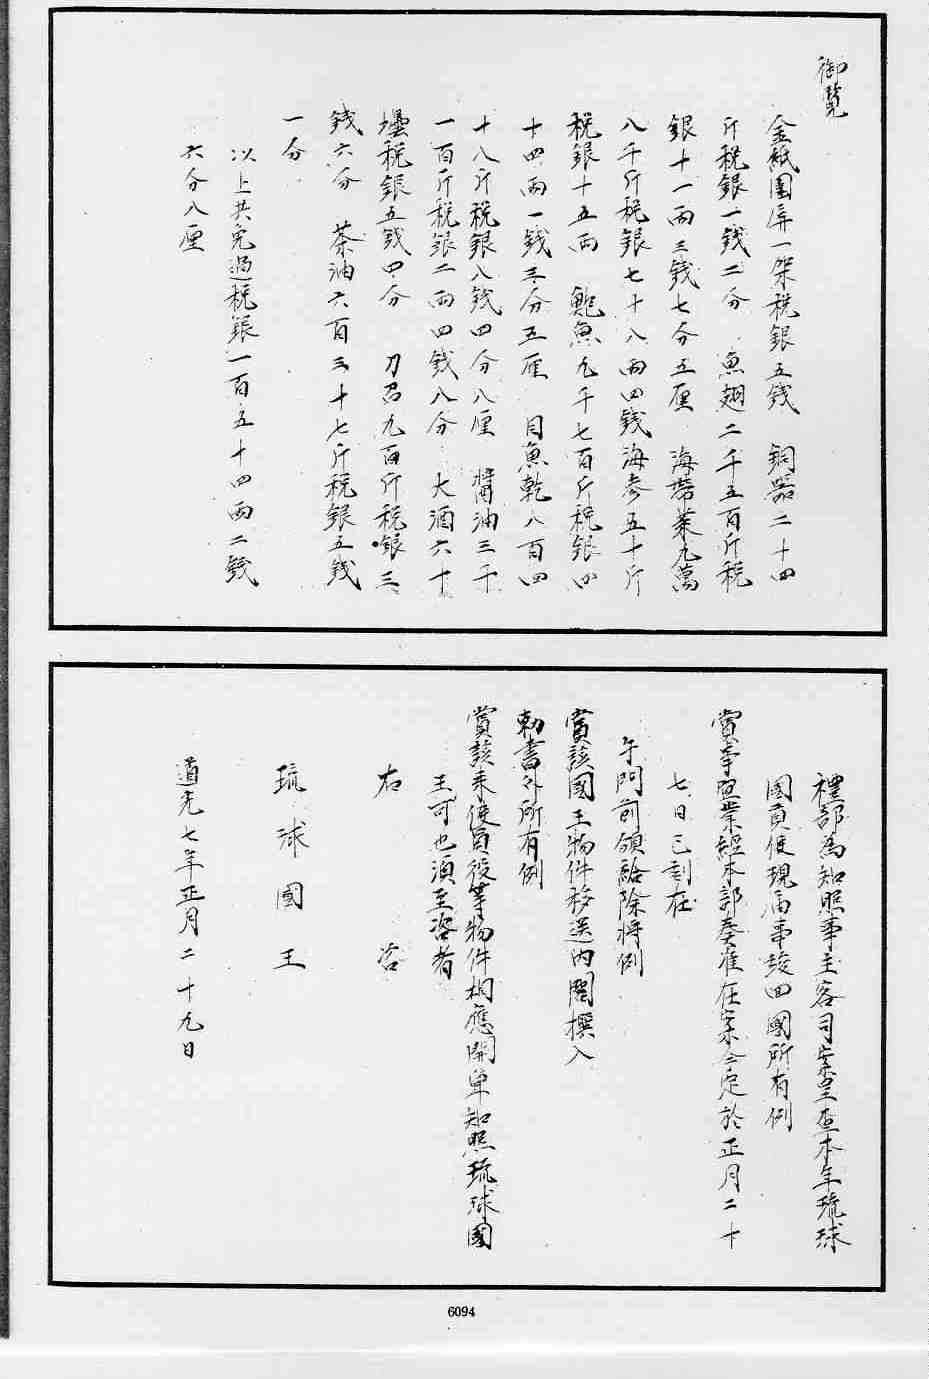 御覽
金紙圍屏一架稅銀五錢　銅器二十四
斤稅銀一錢二分　魚翅二千五百斤稅
銀十一兩三錢七分五厘　海帶菜九萬
八千斤稅銀七十八兩四錢海參五十斤
稅銀十五兩　鮑魚九千七百斤稅銀四
十四兩一錢三分五厘　目魚乾八百四
十八斤稅銀八錢四分八厘　醬油三千
一百斤稅銀二兩四錢八分　大酒六十
壜稅銀五錢四分　刀石九百斤稅銀三
錢六分　茶油六百三十七斤稅銀五錢
一分
以上共免過稅銀一百五十四兩二錢
六分八厘
禮部為知照事主客司案呈查本年琉球
國貢使現屆事竣回國所有例
賞事宜業經本部奏准在案今定於正月二十
七日巳刻在
午門前頒給除將例
賞該國王物件移送內閣撰入
勅書外所有例
賞該來使員役等物件相應開單知照琉球國
王可也須至咨者
右咨
琉球國王
道光七年正月二十九日
6094